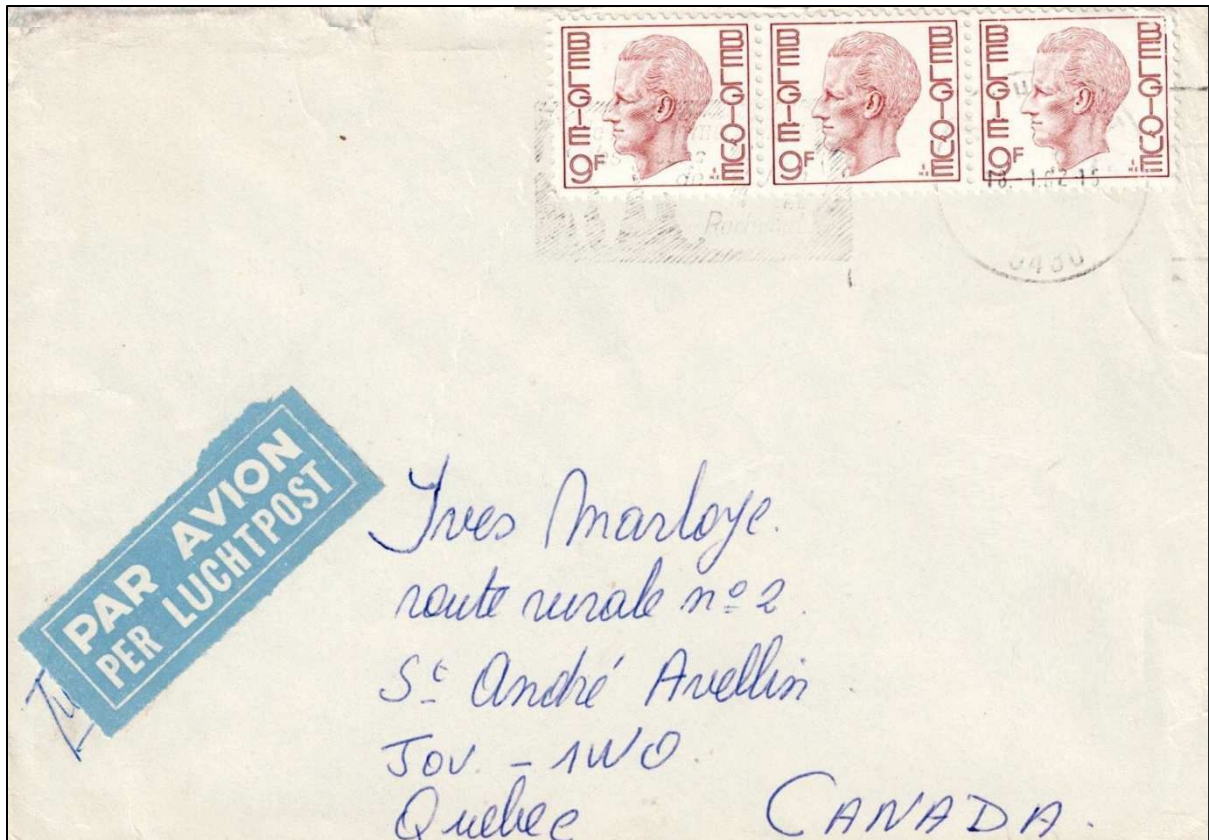 BELGIE BELGIQUE 9F
BELGIE BELGIQUE 9F
BELGIE BELGIQUE 9F
18.-1.82.15
0480
PAR AVION
PER LUCHTPOST
Yves Marloye.
route rurale nº 2.
St André Avellin.
JOV. - 1WO.
Quebec CANADA.